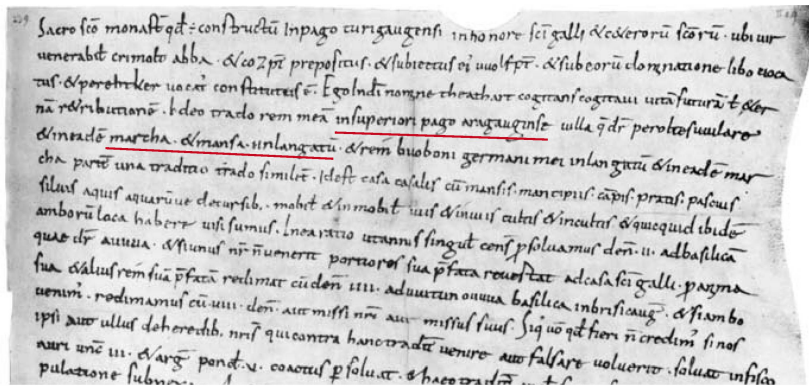 Sacro sco monast qd ÷ constructu In pago turigaugensi in honore sci galli & ceterorū scorū · ubi vir
venerabit crimolt abba · & cozpt prepositus · & subiectus ei vuolfpt · & sub eorū dominatione libo
tus · & perehtker vocat constitutus ē · Ego Indi nomine theathart cogitans cogitavi vitā futurā & &er
nā r&ributionē · Ideo trado rem meā in superiori pago aragauginse villa q dr peroltesvvilare
& in eadē marcha · & mansa · in langatū · & rem buoboni germani mei in langatū & in eadē mar
cha parit una traditio trado similit · Id est casa casalis cū mansis · mancipiis · cāpis · pratis · pascuis
silvis aquis aquarūve decursib · mobit & inmobit viis & inviis cultis & incultis & quicquid ibidē
amborū loca habere visi sumus · In ea ratio ut annis singut cens psolvamus den · II · ad basilicā
quae dr auvua · & si unus nr n venerit portiores sua pfata revestat ad casā sci galli · p arma
sua & alius rem suā pfatā redimat cū den IIII · ad vuitunouvua basilica in brisicaug · & si ambo
venim · redimamus cū VIII · den · aut missi nri aut missus suus · Si quo qd fieri n credim si nos
ipsi aut ullus de heredib · nris qui contra hanc tradit venire aut falsare voluerit · solvat in fisco
auri unc III · & arg pond · V · coactus psolvat · & haec tradit
pulatione subn